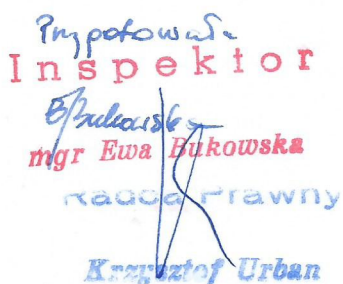 Przygotowała
Inspektor
EBukowska
mgr Ewa Bukowska
Radca Prawny
Krzysztof Urban